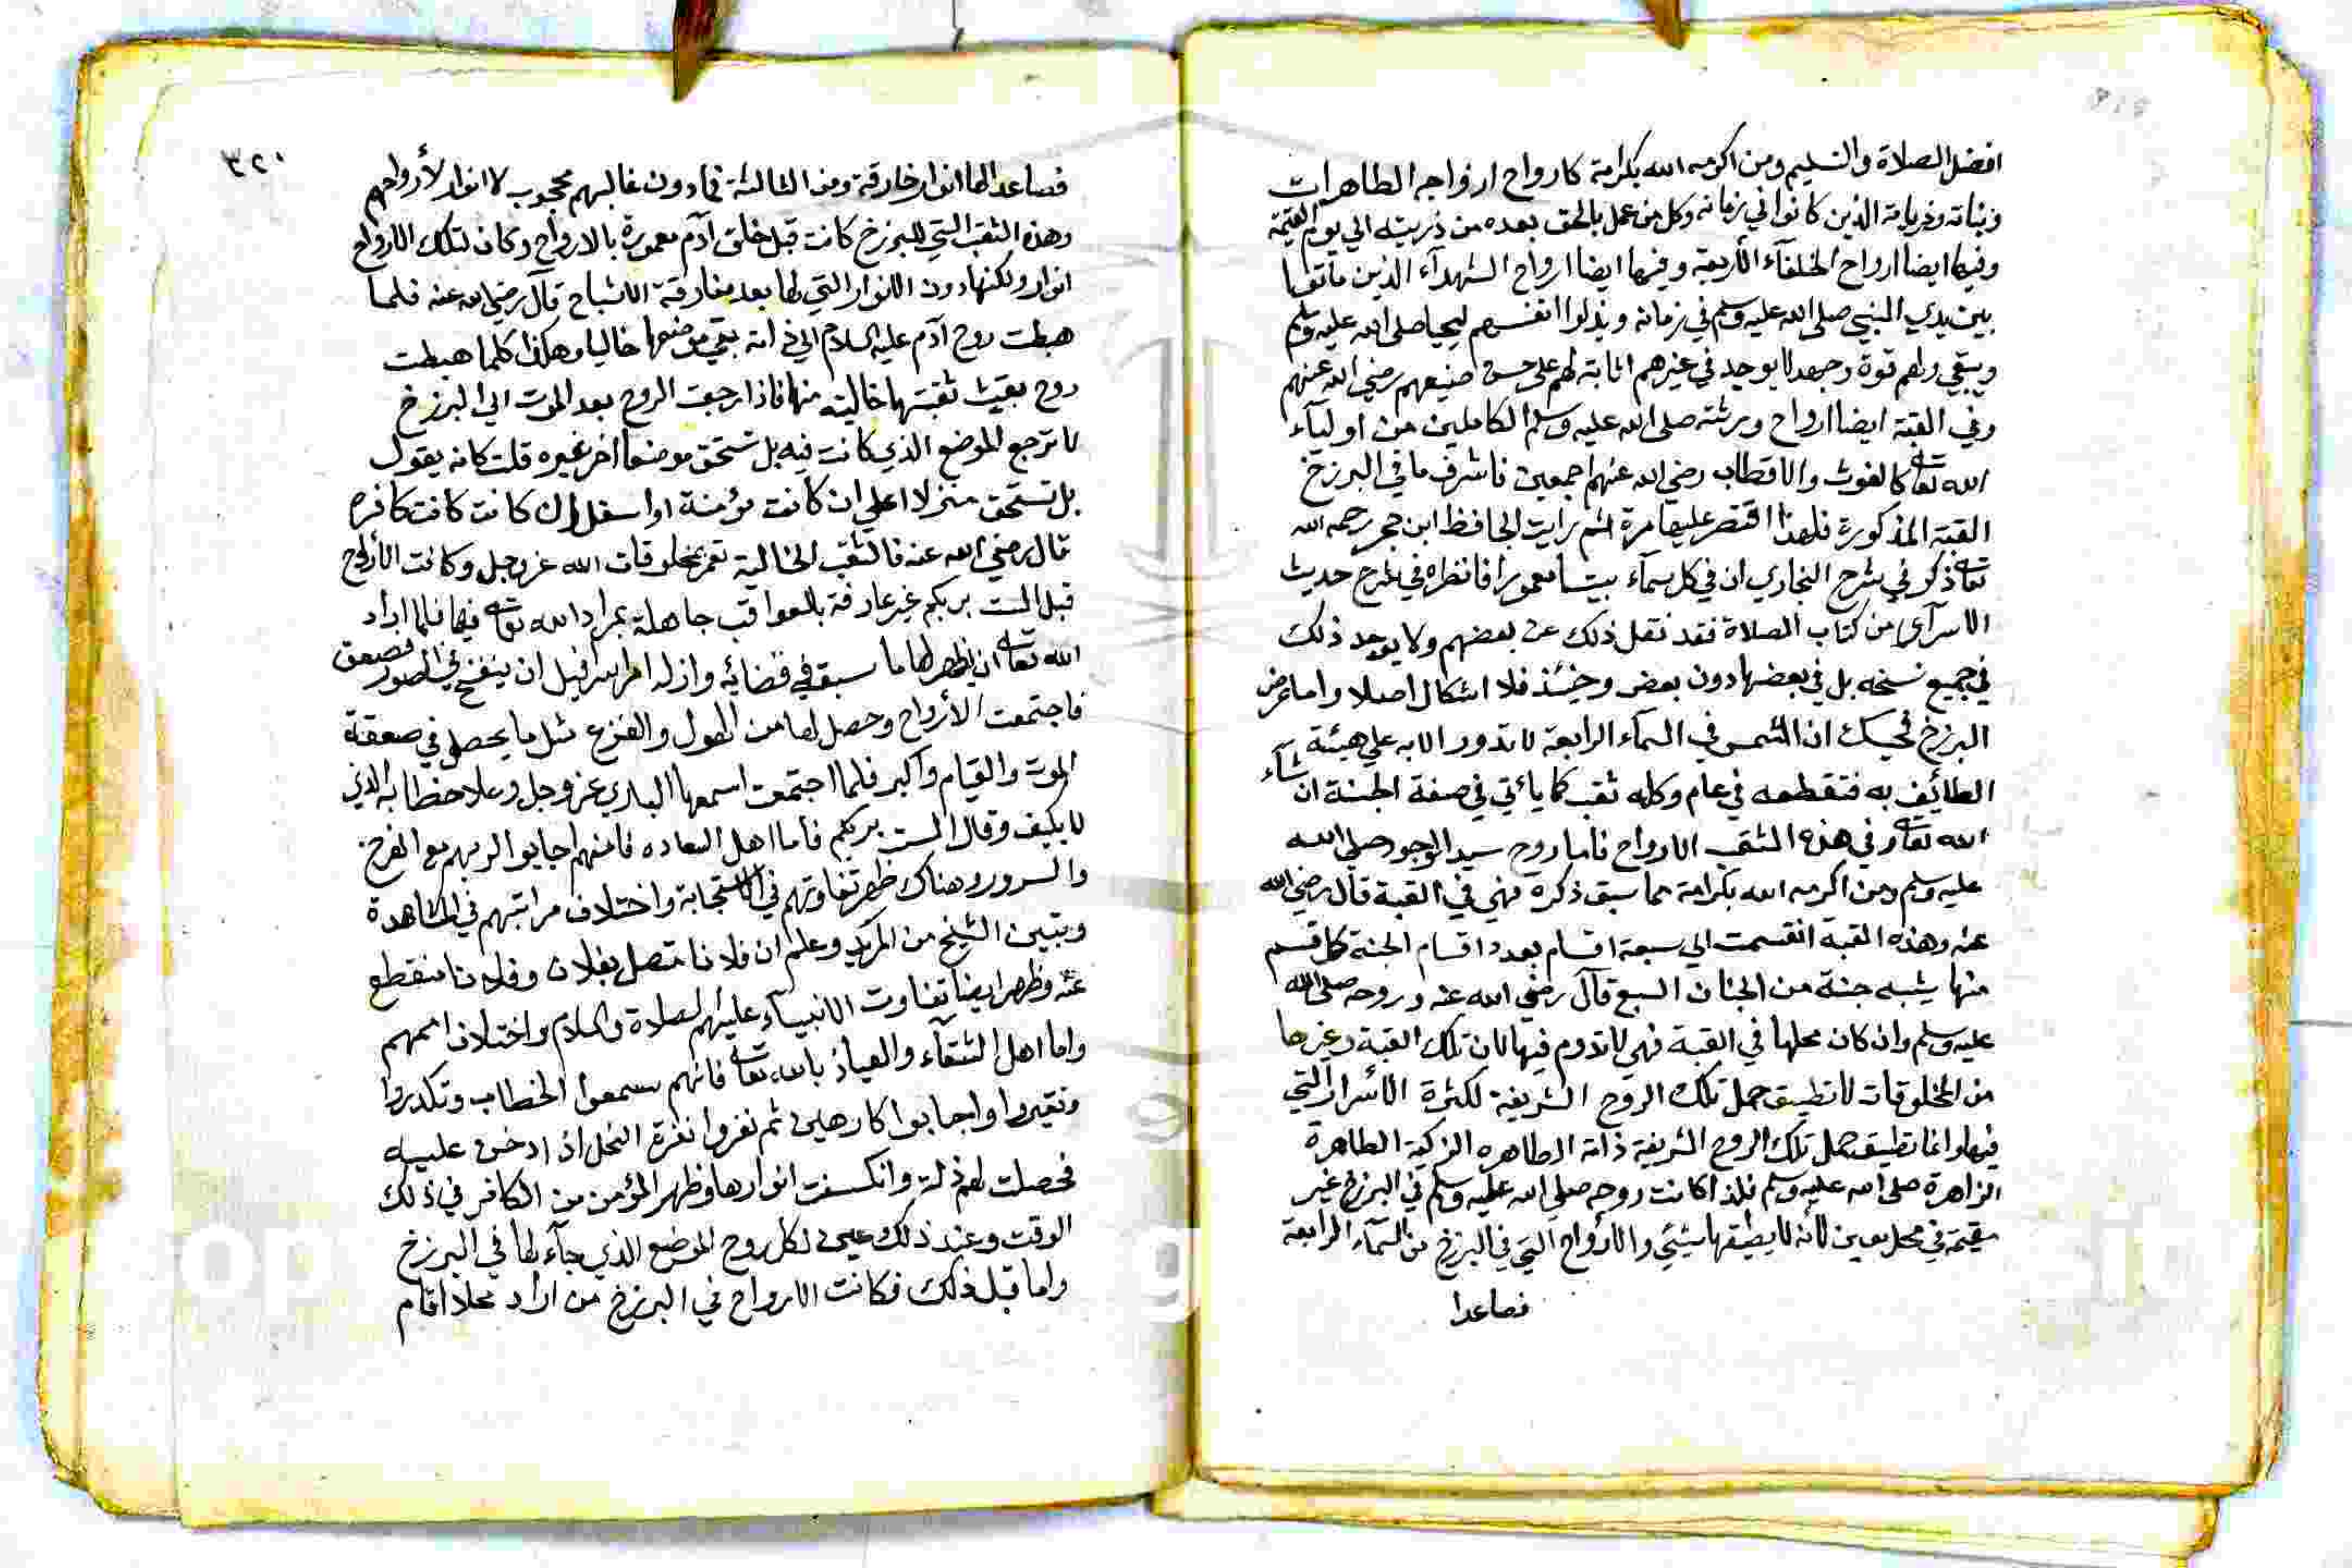 افضل الصلاة والتسليم ومن اكرمه الله بكرامة كارواح ازواجه الطاهرات
وبناته وذرياته الذين كانوا في زمانه وكل من عمل بالحق بعده من ذريته الي يوم القيمة
وفيها ايضا ارواح الخلفآء الأربعة وفيها ايضا ارواح الشهدآء الذين ماتوا
بين يدي النبي صلى الله عليه وسلم في زمانه وبذلوا انفسهم ليحيا صلى الله عليه وسلم
ويبقي ولهم قوة وجهد لا يوجد في غيرهم اثابة لهم على حسن صنيعهم رضي الله عنهم
وفي القبة ايضا ارواح ورثته صلى الله عليه وسلم الكاملين من اوليآء
الله تعا كالغوث والاقطاب رضي الله عنهم اجمعين فاشرف ما في البرزخ
القبة المذكورة فلهذا اقتصر عليها مرة ثم رايت الحافظ ابن حجر رحمه الله
تعا ذكر في شرح البخاري ان في كل سمآء بيتا معمورا فانظره في شرح حديث
الاسرآى من كتاب الصلاة فقد نقل ذلك عن بعضهم ولا يوجد ذلك
في جميع نسخه بل في بعضها دون بعض وحينئذ فلا اشكال اصلا واما عرض
البرزخ فحسبك ان الشمس في السمآء الرابعة لا تدور الا به علي هيئة
الطائف به فتقطعه في عام وكله ثقب كما يأتي في صفة الجنة ان شآء
الله تعا وفي هذه الثقب الارواح فاما روح سيد الوجود صلى الله
عليه وسلم ومن اكرمه الله بكرامة مما سبق ذكره فهي في القبة قال رضي الله
عنه وهذه القبة انقسمت الي سبعة اقسام بعدد اقسام الجنة كل قسم
منها يشبه جنة من الجنان السبع قال رضي الله عنه وروحه صلى الله
عليه وسلم وان كان محلها في القبة فهي لا تدوم فيها لان تلك القبة وغيرها
من المخلوقات لا تطيق حمل تلك الروح الشريفة لكثرة الأسرار التي
فيها وانما تطيق حمل تلك الروح الشريفة ذاته الطاهره الزكية الطاهرة
الزاهرة صلى الله عليه وسلم فلذا كانت روحه صلى الله عليه وسلم في البرزخ غير
مقيمة في محل معين لأنه لا يطيقها شيئ والأرواح التي في البرزخ من السمآء الرابعة
فصاعدا
٣٢٠
فصاعدا لها انوار خارقة ومن الثالثة فما دون غالبهم محجوب لا انوار لأرواحهم
وهذه الثقب التي للبرزخ كانت قبل خلق آدم معمورة بالارواح وكان لتلك الارواح
انوار ولكنها دون الانوار التي لها بعد مفارقة الاشباح قال رضي الله عنه فلما
هبطت روح آدم عليه السلام الي ذاته بقي موضعها خاليا وهكذا كلما هبطت
روح بقيت ثقبتها خالية منها فاذا رجعت الروح بعد الموت الي البرزخ
لا ترجع للموضع الذي كانت فيه بل تستحق موضعا اخر غيره قلت كانه يقول
بل تستحق منزلا اعلي ان كانت مؤمنة او اسفل ان كانت كانت كافره
قال رضي الله عنه فالثقب الخالية تعمر بمخلوقات الله عز وجل وكانت الأرواح
قبل الست بربكم غير عارفة بالعواقب جاهلة بمراد الله تعا فيها فلما اراد
الله تعا ان يظهر لها ما سبق في قضائه وازله امر اسرافيل ان ينفخ في الصور فصعق
فاجتمعت الأرواح وحصل لها من الهول والفزع مثل ما يحصل في صعقة
الموت والقيام واكبر فلما اجتمعت اسمعها الباري عز وجل وعلا خطابه الذي
لا يكيف وقال الست بربكم فاما اهل السعاده فانهم اجابوا لربهم مع الفرح
والسرور وهناك ظهر تفاوتهم في الاستجابة واختلاف مراتبهم في المشاهدة
وتبين الشيخ من المريد وعلم ان فلانا متصل بفلان وفلانا منقطع
عنه وظهر ايضا تفاوت الانبيآء عليهم الصلاة والسلام واختلاف اممهم
واما اهل الشقآء والعياذ بالله تعا فانهم سمعوا الخطاب وتكدروا
وتغيروا واجابوا كارهين ثم نفروا نفرة النحل اذا دخن عليه
فحصلت لهم ذلة وانكسفت انوارها وظهر المؤمن من الكافر في ذلك
الوقت وعند ذلك عين لكل روح الموضع الذي جآء لها في البرزخ
واما قبل ذلك فكانت الارواح في البرزخ من اراد محلا اقام